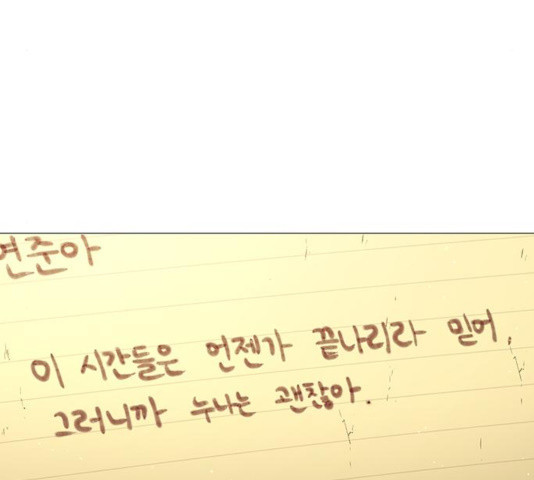 연준아
이 시간들은 언젠가 끝나리라 믿어.
그러니까 누나는 괜찮아.